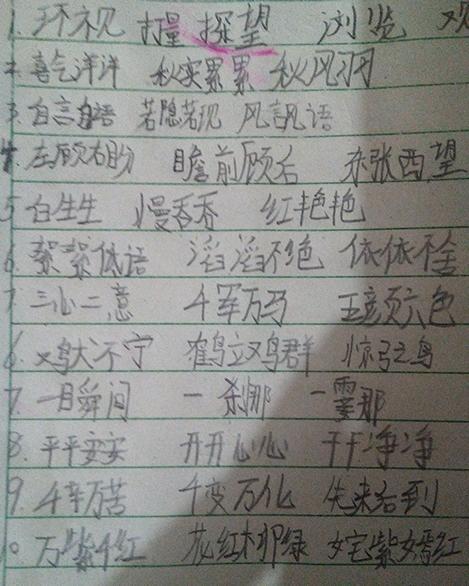 1.环视 打量 探望 浏览 观
2.喜气洋洋 秋实累累 秋风习习
3.自言自语 若隐若现 风言风语
4.左顾右盼 瞻前顾后 东张西望
5.白生生 慢吞吞 红艳艳
6.絮絮低语 滔滔不绝 依依不舍
7.三心二意 千军万马 五颜六色
6.鸡犬不宁 鹤立鸡群 惊弓之鸟
7.一瞬间 一刹那 一霎那
8.平平安安 开开心心 干干净净
9.千辛万苦 千变万化 先来后到
10.万紫千红 花红柳绿 姹紫嫣红